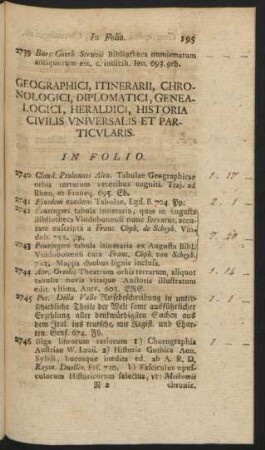 In Folio. 195
2739 Burc. Gotth. Struvii Bibliotheca numismatum
antiquiorum etc. c. indicib. Ien. 693. geh.
GEOGRAPHICI, ITINERARII, CHRO-
NOLOGICI, DIPLOMATICI, GENEA-
LOGICI, HERALDICI, HISTORIA
CIVILIS VNIVERSALIS ET PAR-
TICVLARIS.
IN FOLIO.
2740 Claud. Ptolomaei Alex. Tabulae Geographicae 1. 17
orbis terrarum veteribus cogniti. Traj. ad
Rhen. et Franeq. 695. Eb.
2741 Ejusdem eaedem Tabulae, Lgd. B. 704. Pp. 2 - 1
2742 Peutingeri tabula itineraria, quae in Augusta
Bibliotheca Vindobonensi nunc servatur, accu-
rate exscripta a Franc. Chph. de Scheyb, Vin-
dob. 753. Pp. 7.
2743 Peutingeri tabula itineraria ex Augusta Bibl.
Vindobonensi cura Franc. Chph. von Scheyb,
Mappa duabus lignis inclusa.
2744 Abr. Ortelii Theatrum orbis terrarum, aliquot 1. 14
tabulis novis vitaque Auctoris illustratum
edit. ultima. Antv. 603. ERF.
2745 Pet. Della Valle Reisebeschreibung in unter- 1 -
schiedliche Theile der Welt samt ausführlicher
Erzehlung aller denkwürdigsten Sachen aus
dem Ital. ins teutsche, mit Regist. und Char-
ten. Genf. 674. Fb.
2746 Biga librorum rariorum 1) Chorographia 1 -
Austriae W. Lazii. 2) Historia Gothica Aen.
Sylvii, hucusque inedita ed. ab A. R. D.
Raym. Duellio, Frf. 730. b) Fasciculus opus-
culorum Historicorum selectus, vt: Meibomii
N 2 chronic.